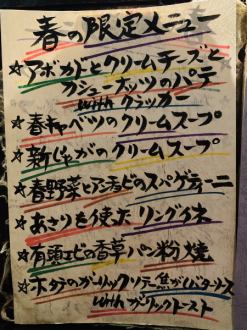 春の限定メニュー
☆アボカドとクリームチーズと
カシューナッツのパテ
withクラッカー
☆春キャベツのクリームスープ
☆新じゃがのクリームスープ
☆春野菜とアンチョビのスパゲティーニ
☆あさりを使たリングイネ
☆有頭エビの香草パン粉焼
☆ホタテのガーリックソテー焦がしバターソース
withガーリックトースト